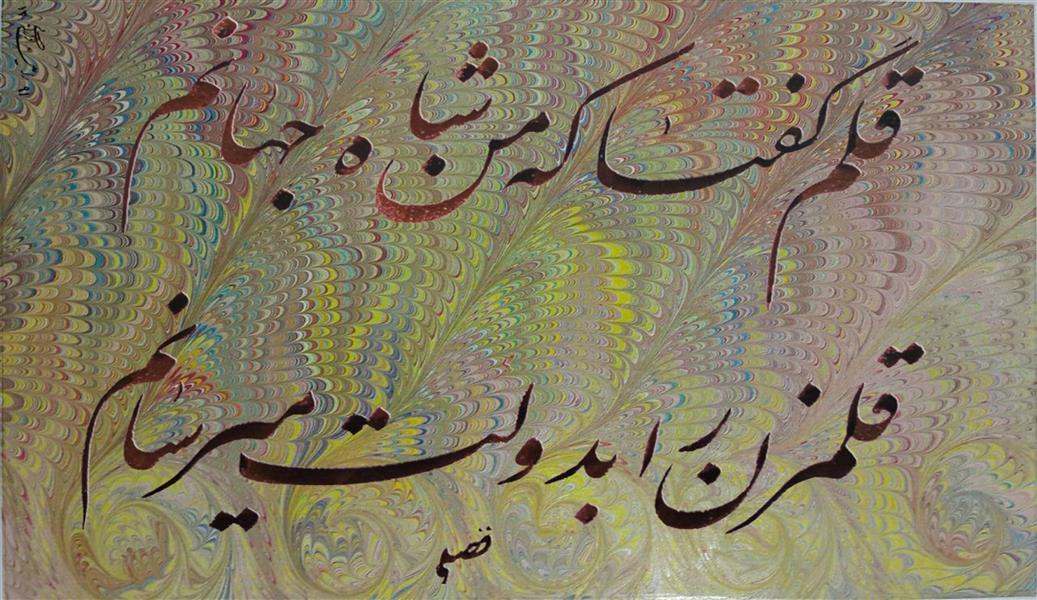 قلم گفتا که من شاه جهانم
قلمزن را بدولت میرسانم